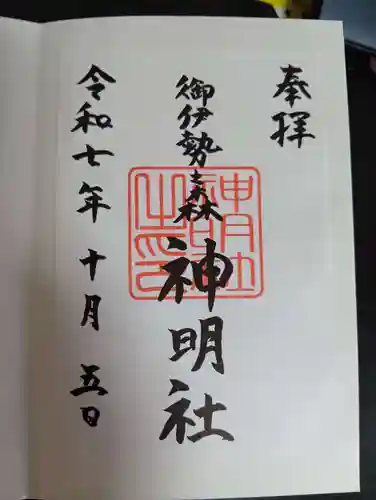 奉拝
御伊勢森
神明社
令和七年十月五日
神明社之印